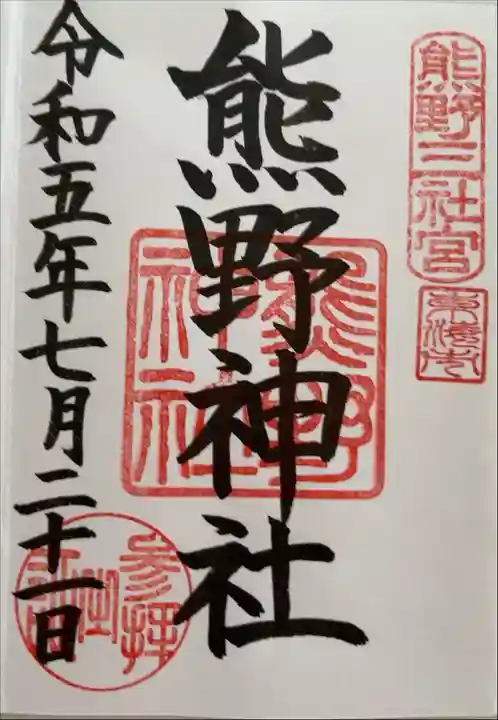 熊野三社宮
熊野神社
熊野
神社
令和五年七月二十一日
参拝